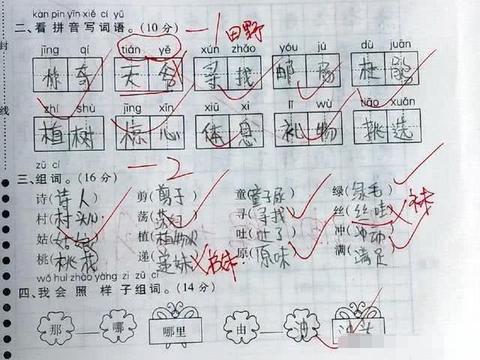 kàn pīn yīn xiě cí yǔ
二、看拼音写词语。(10分) 一1 田野
jīng qí tián yě xún zhǎo yóu jú dù juān
寻找 邮 杜鹃
zhí shù jīng xīn xiū xi lǐ wù tiāo xuǎn
植树 心 休息 礼物 挑选
zǔ cí
三、组词。(16分) 一2
诗(诗人) 剪(剪子) 童(童子尿) 绿(绿毛)
村(村) 荡( ) 寻(寻找) 丝(丝哇) 袜
姑(姑娘) 植(植物人) 吐(吐了) 冲(冲动)
桃(桃花) 递( 妹) 妹 原(原味) 满(满足)
wǒ huì zhào yàng zi zǔ cí
四、我会照样子组词。(14分)
那 — 哪 哪里 由 — 油